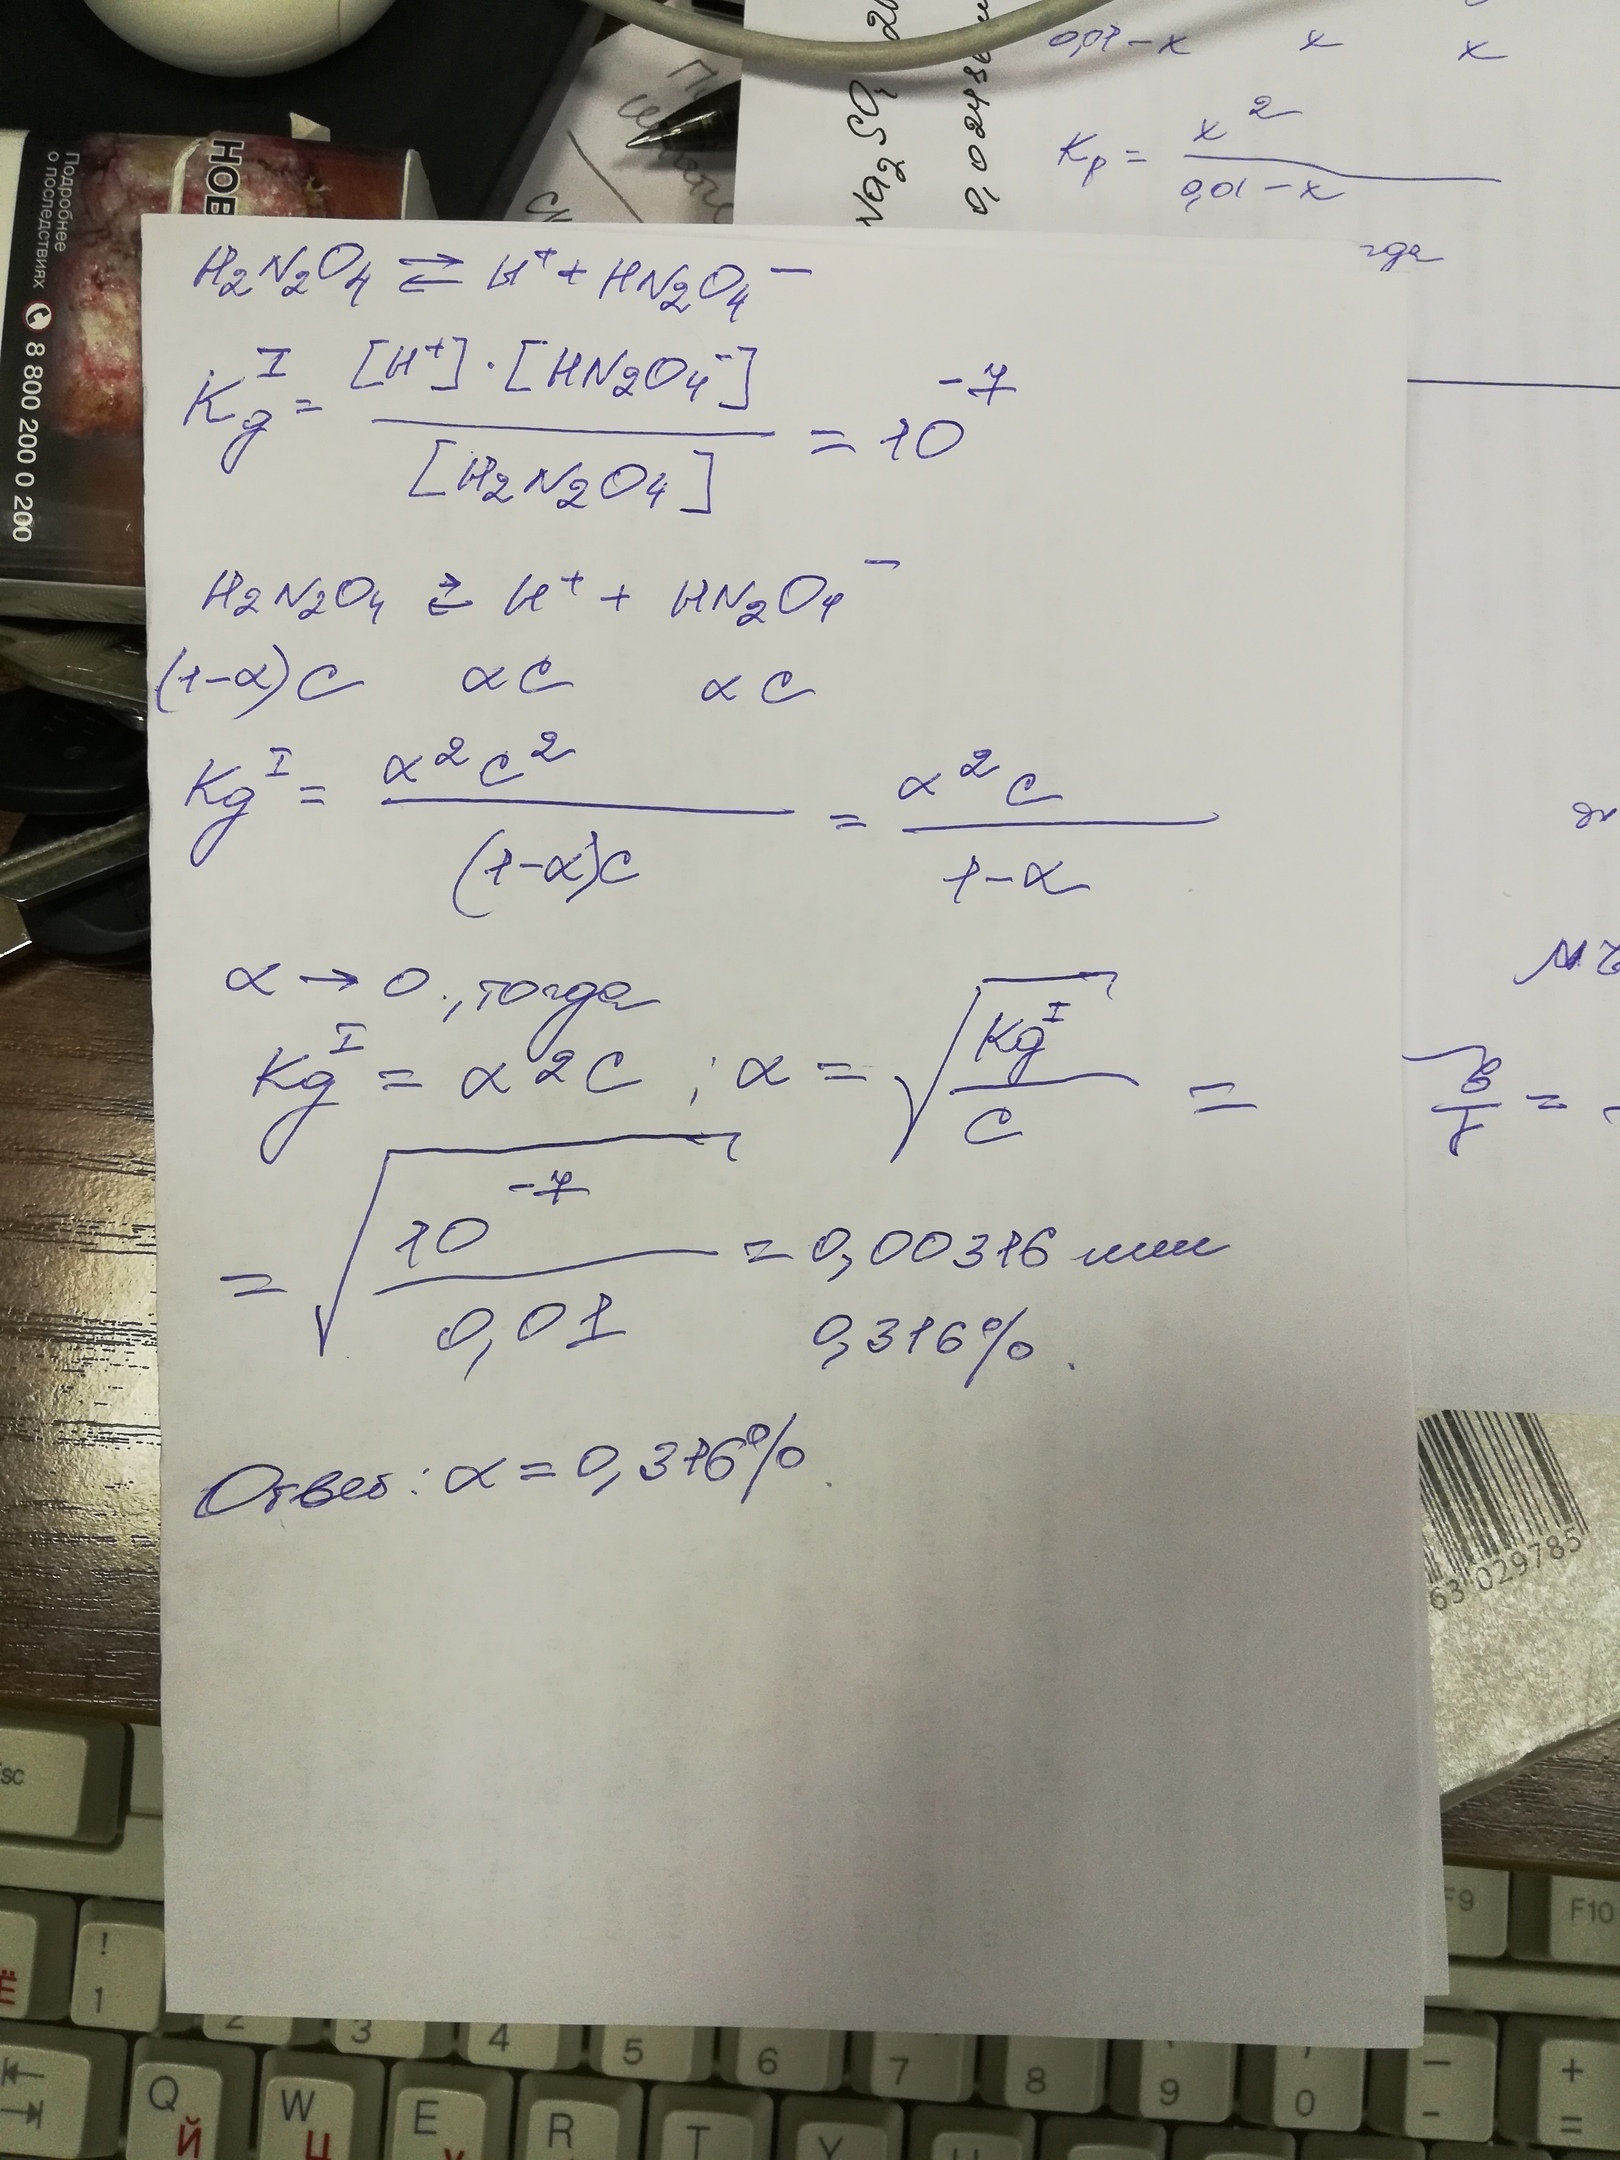 0,01-x x x
Kp = x² / (0,01-x)
Na₂SO₄
НОВ
Подробнее
о последствиях
8 800 200 0 200
H₂N₂O₄ ⇄ H⁺ + HN₂O₄⁻
Kgᴵ = [H⁺]·[HN₂O₄⁻] / [H₂N₂O₄] = 10⁻⁷
H₂N₂O₄ ⇄ H⁺ + HN₂O₄⁻
(1-α)C αC αC
Kgᴵ = α²C² / (1-α)C = α²C / 1-α
α → 0, тогда
Kgᴵ = α²C ; α = √(Kgᴵ / C) =
= √(10⁻⁷ / 0,01) = 0,00316 или
0,316%.
Ответ: α = 0,316%.
63 029785
Esc
F9
F10
!
1
Ё
2
3
4
5
6
7
8
9
0
-
-
+
=
Q
Й
W
Ц
E
У
R
T
Y